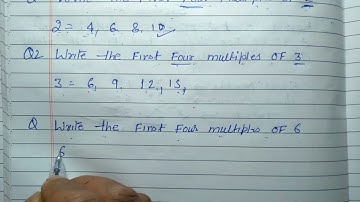 2 = 4, 6 8, 10
Q2 Write the First Four multiples OF 3
3 = 6, 9. 12, 15,
Q Write the First Four multiples OF 6
6